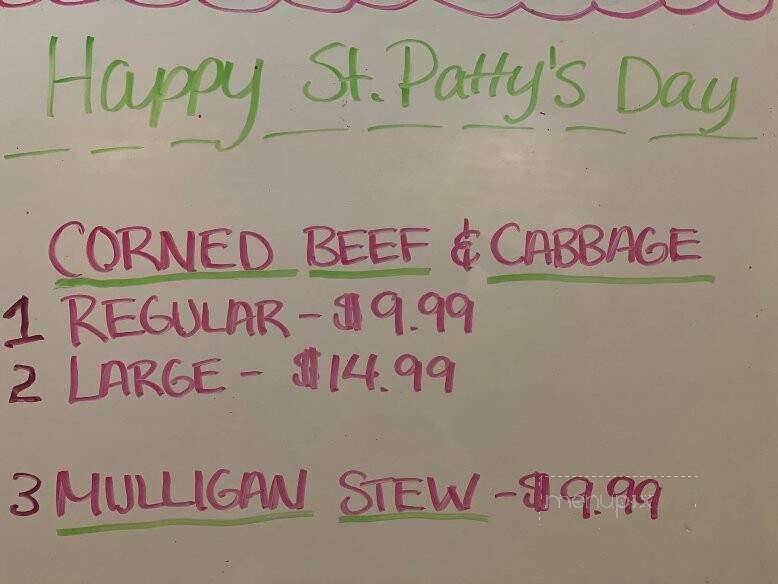 Happy St. Patty's Day
CORNED BEEF & CABBAGE
1 REGULAR - $9.99
2 LARGE - $14.99
3 MULLIGAN STEW - $9.99
menupix